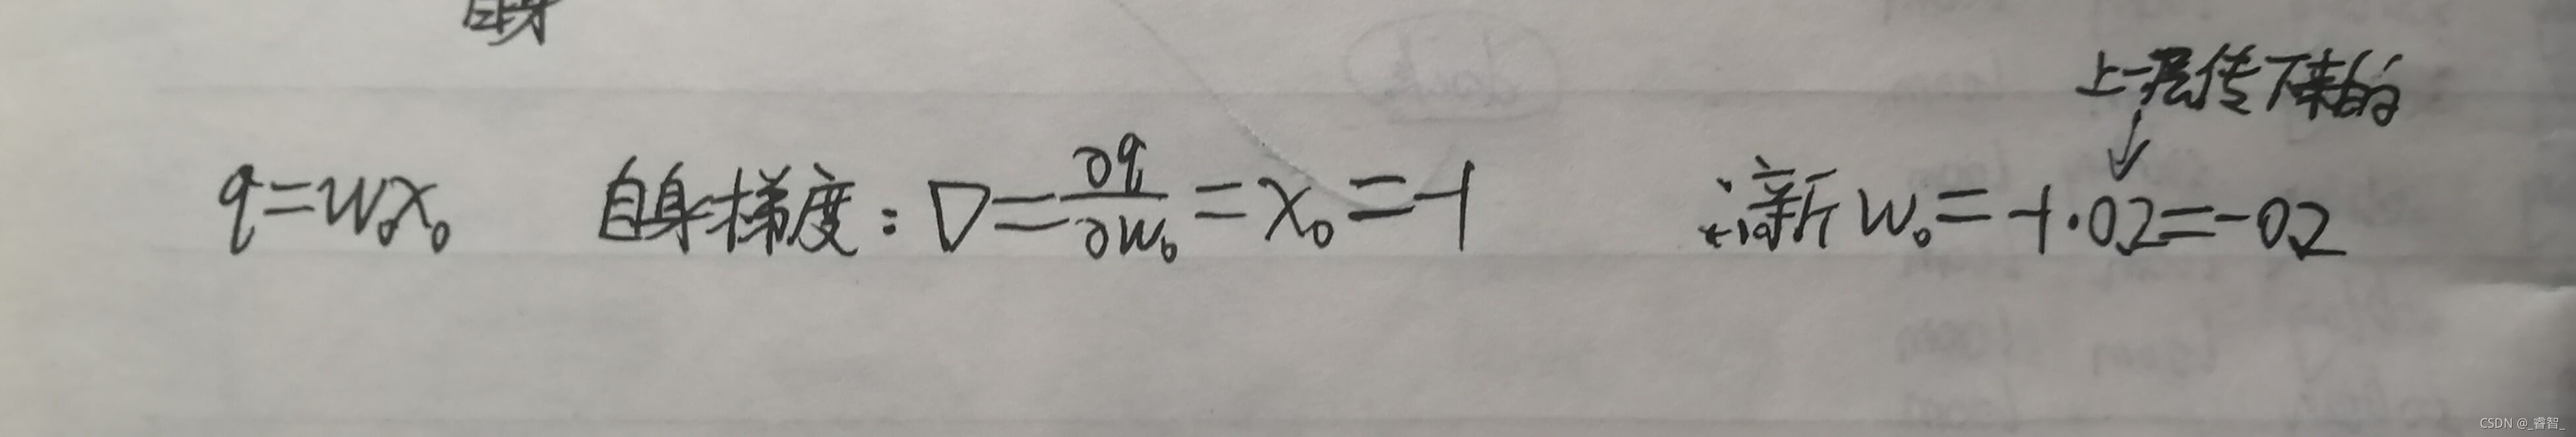 自身
上一层传下来的
q=w₀x₀ 自身梯度：∇=∂q/∂w₀=x₀=-1 ∴新w₀=-1·0.2=-0.2
CSDN @_睿智_